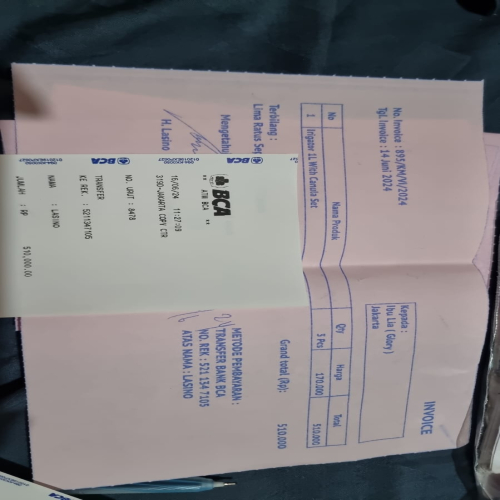 INVOICE
No. Invoice : 895/KM/VI/2024
Tgl. Invoice : 14 Juni 2024
Kepada :
Ibu Lia ( Glory )
Jakarta
No Nama Produk Qty Harga Total
1 Irigator 1L With Canula Set 3 Pcs 170.000 510.000
Grand total (Rp): 510.000
Terbilang :
Lima Ratus Sep
Mengetahui
H. Lasino
METODE PEMBAYARAN :
TRANSFER BANK BCA
NO. REK : 521 134 7105
ATAS NAMA : LASINO
BCA
** ATM BCA **
16/06/24 11:27:09
3150-JAKARTA COPY CTR
NO. URUT : 8478
TRANSFER
KE REK. : 5211347105
NAMA : LASINO
JUMLAH : RP 510,000.00
BCA
BCA
BCA